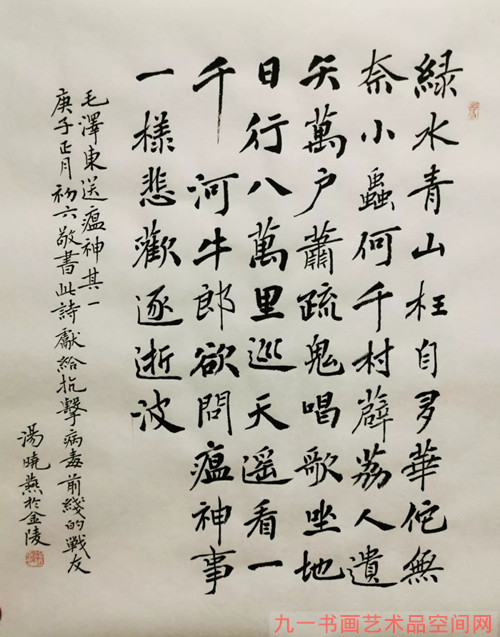 緑水青山枉自多華佗無
奈小蟲何千村薜荔人遺
矢萬户蕭疏鬼唱歌坐地
日行八萬里巡天遥看一
千河牛郎欲問瘟神事
一樣悲歡逐逝波
毛澤東送瘟神其一
庚子正月初六敬書此詩獻給抗擊病毒前綫的戰友
湯曉燕於金陵
九一书画艺术品空间网